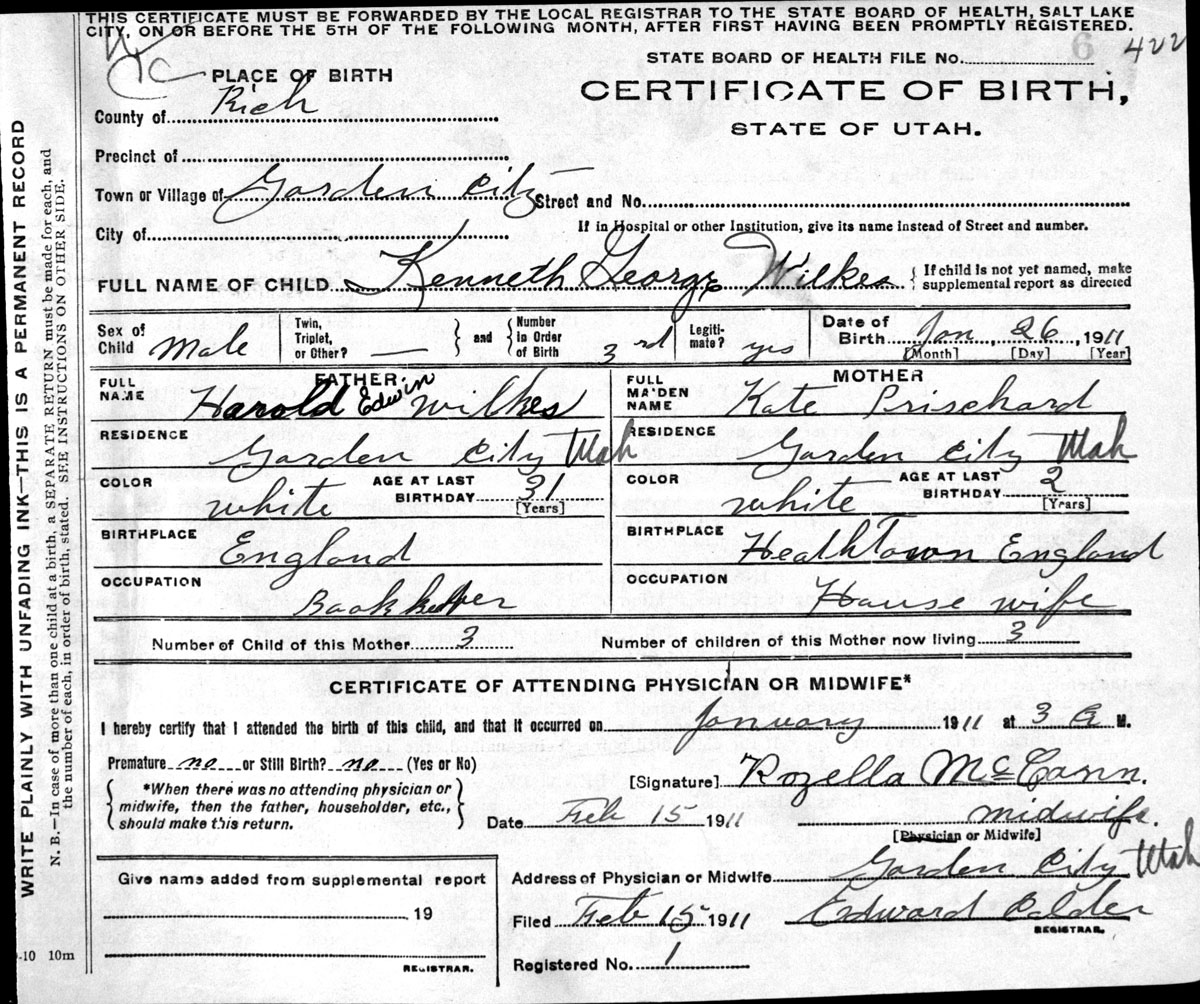 THIS CERTIFICATE MUST BE FORWARDED BY THE LOCAL REGISTRAR TO THE STATE BOARD OF HEALTH, SALT LAKE
CITY, ON OR BEFORE THE 5TH OF THE FOLLOWING MONTH, AFTER FIRST HAVING BEEN PROMPTLY REGISTERED.
6 422
STATE BOARD OF HEALTH FILE NO.
PLACE OF BIRTH
CERTIFICATE OF BIRTH,
STATE OF UTAH.
County of Rich
Precinct of
Town or Village of Garden City Street and No.
City of If in Hospital or other Institution, give its name instead of Street and number.
FULL NAME OF CHILD Kenneth George Wilkes { If child is not yet named, make
supplemental report as directed
Sex of Child Male
Twin, Triplet, or Other? —
} and { Number in Order of Birth 3rd
Legiti-mate? yes
Date of Birth Jan, 26, 1911
[Month] [Day] [Year]
FATHER
FULL NAME Harold Edwin Wilkes
RESIDENCE Garden City Utah
COLOR white AGE AT LAST BIRTHDAY 31 [Years]
BIRTHPLACE England
OCCUPATION Bookkeeper
MOTHER
FULL MAIDEN NAME Kate Prischard
RESIDENCE Garden City Utah
COLOR white AGE AT LAST BIRTHDAY 2 [Years]
BIRTHPLACE Heathtown England
OCCUPATION House wife
Number of Child of this Mother 3 Number of children of this Mother now living 3
CERTIFICATE OF ATTENDING PHYSICIAN OR MIDWIFE*
I hereby certify that I attended the birth of this child, and that it occurred on January 1911 at 3 A M.
Premature no or Still Birth? no (Yes or No)
[Signature] Rozella McCann.
{ *When there was no attending physician or
midwife, then the father, householder, etc.,
should make this return. }
Date Feb 15 1911 midwife.
[Physician or Midwife]
Give name added from supplemental report
19
REGISTRAR.
Address of Physician or Midwife Garden City Utah
Filed Feb 15 1911 Edward Calder
REGISTRAR.
Registered No. 1
-10 10m
WRITE PLAINLY WITH UNFADING INK—THIS IS A PERMANENT RECORD
N. B.—In case of more than one child at a birth, a SEPARATE RETURN must be made for each, and
the number of each, in order of birth, stated. SEE INSTRUCTIONS ON OTHER SIDE.